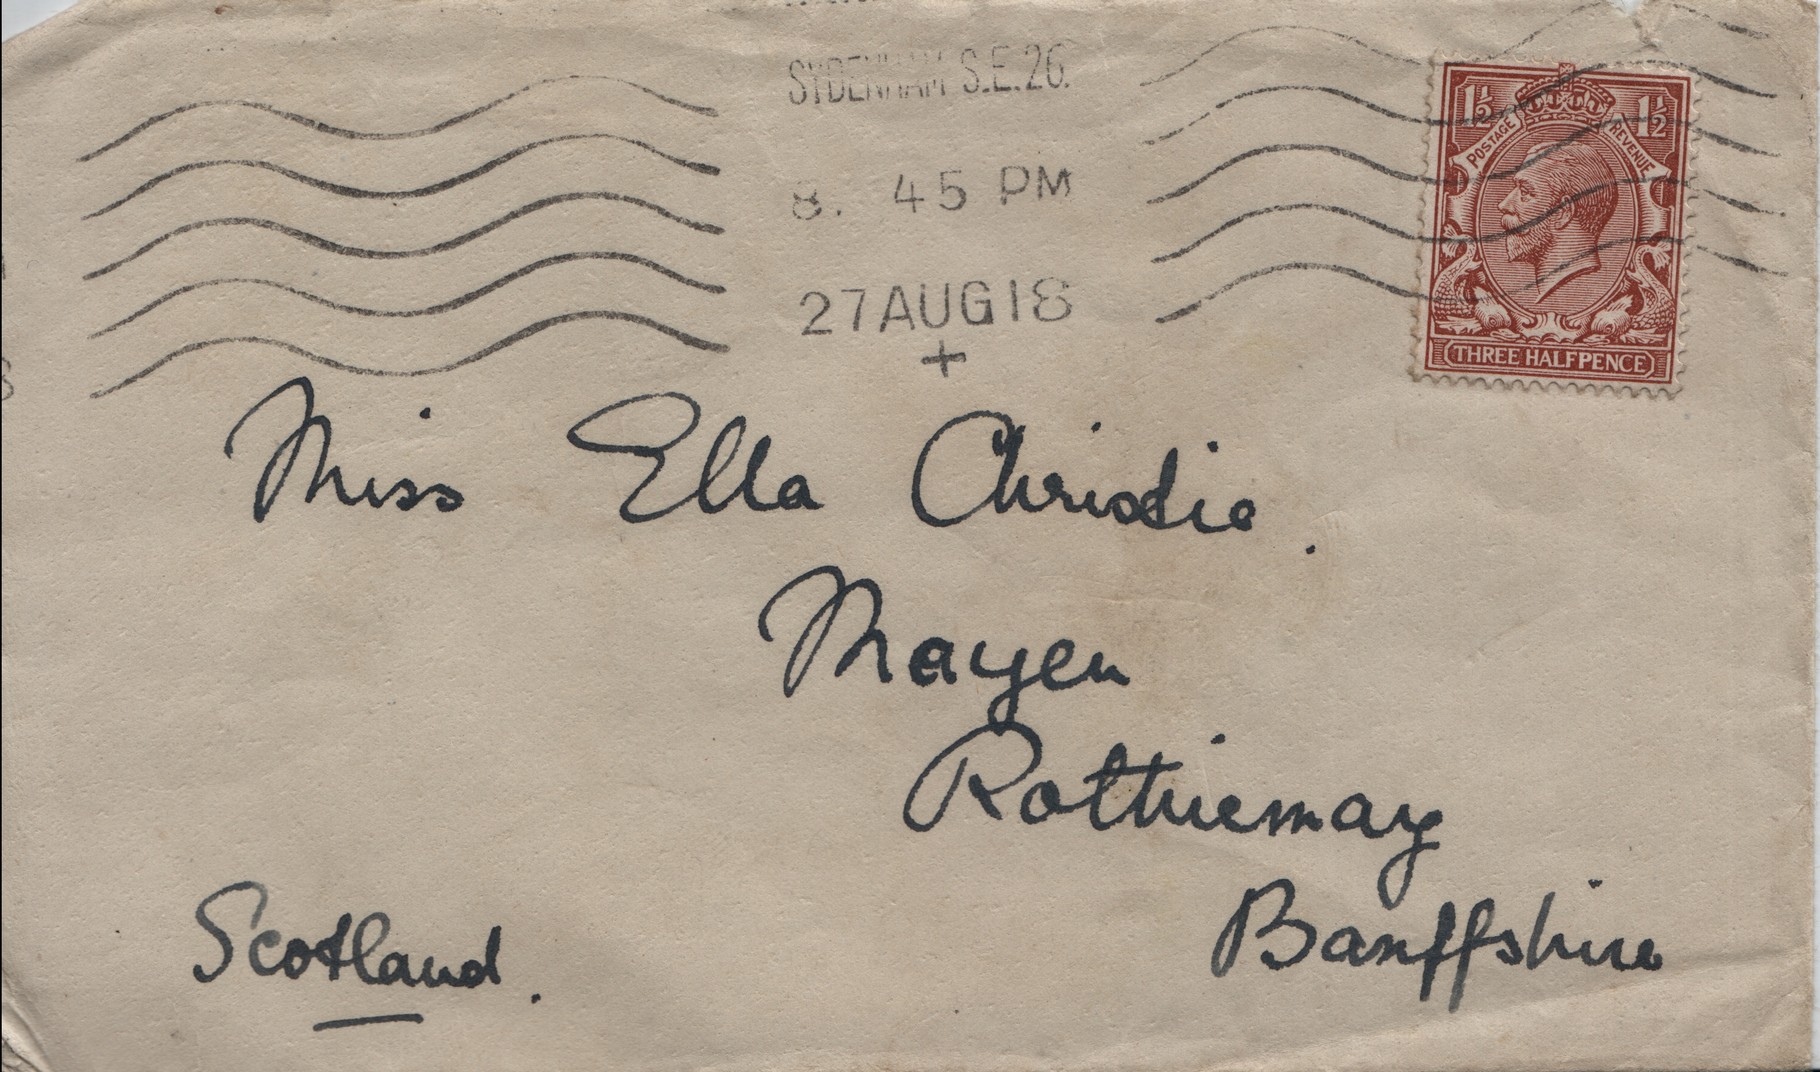 SYDENHAM S.E.26.
8. 45 PM
27 AUG 18
+
1½ 1½
POSTAGE REVENUE
THREE HALFPENCE
Miss Ella Christie.
Mayen
Rothiemay
Banffshire
Scotland.